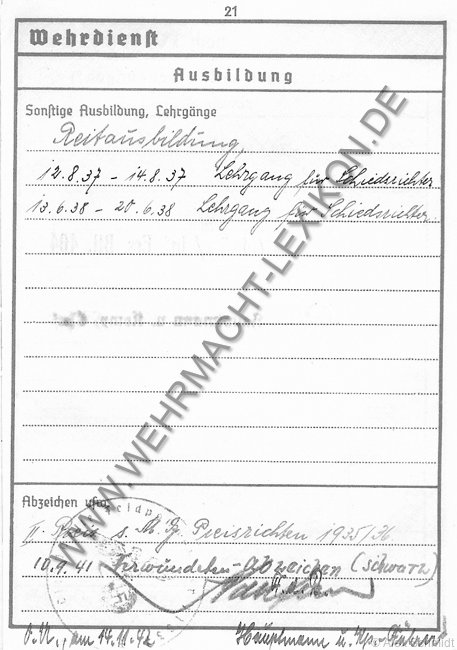 21
Wehrdienst
Ausbildung
Sonstige Ausbildung, Lehrgänge
Reitausbildung,
12.8.37 - 14.8.37 Lehrgang für Schiedsrichter
13.6.38 - 20.6.38 Lehrgang für Schiedsrichter
WWW.WEHRMACHT-LEXIKON.DE
Abzeichen usw.
II. Preis s. M. G. Preisrichten 1935/36
10.9.41 Verwundeten-Abzeichen (schwarz)
O.U., am 14.11.42 Hauptmann u. Kp.-Führer